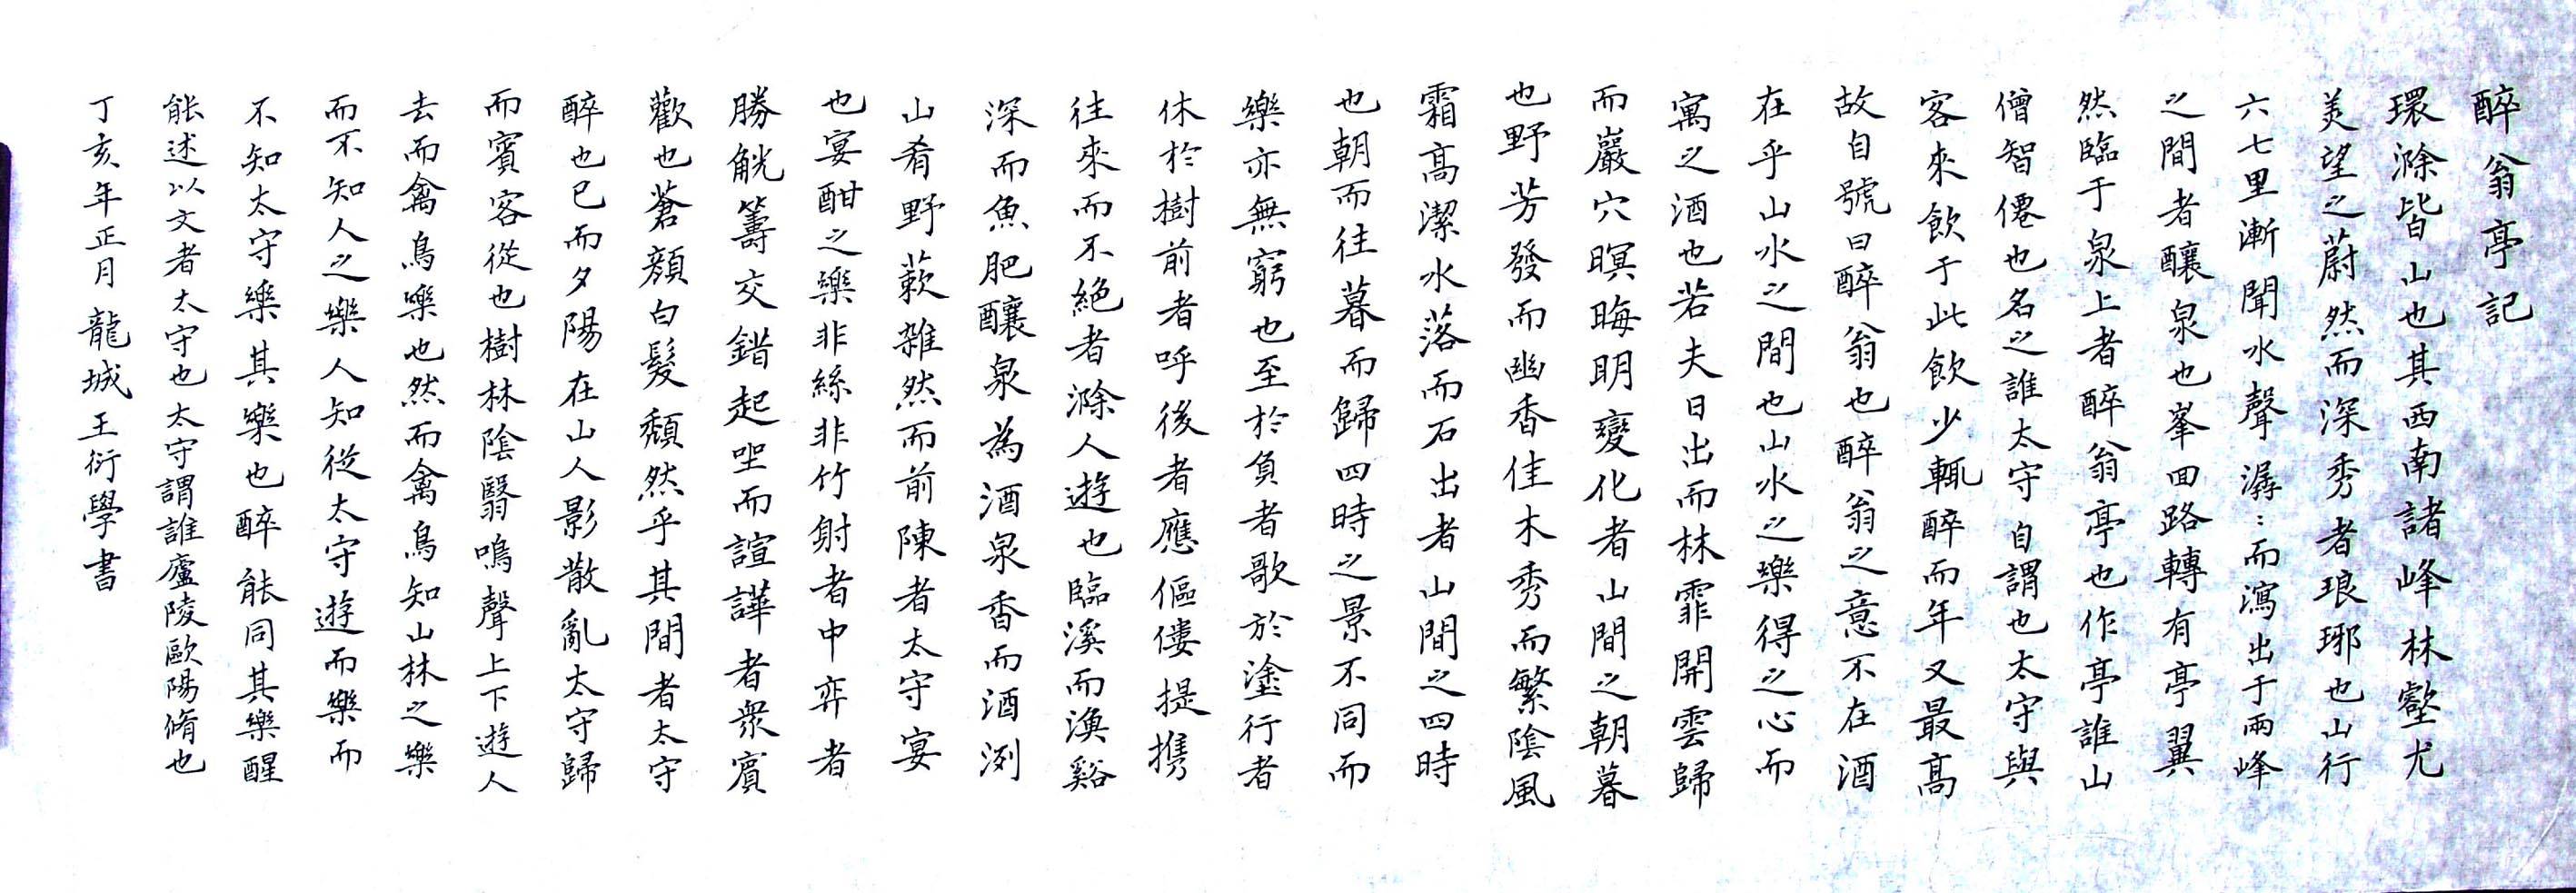 醉翁亭記
環滁皆山也其西南諸峰林壑尤
美望之蔚然而深秀者琅琊也山行
六七里漸聞水聲潺:而瀉出于兩峰
之間者釀泉也峯回路轉有亭翼
然臨于泉上者醉翁亭也作亭誰山
僧智僊也名之誰太守自謂也太守與
客來飲于此飲少輒醉而年又最高
故自號曰醉翁也醉翁之意不在酒
在乎山水之間也山水之樂得之心而
寓之酒也若夫日出而林霏開雲歸
而巖穴暝晦明變化者山間之朝暮
也野芳發而幽香佳木秀而繁陰風
霜高潔水落而石出者山間之四時
也朝而往暮而歸四時之景不同而
樂亦無窮也至於負者歌於塗行者
休於樹前者呼後者應傴僂提攜
往來而不絕者滁人遊也臨溪而漁谿
深而魚肥釀泉為酒泉香而酒洌
山肴野蔌雜然而前陳者太守宴
也宴酣之樂非絲非竹射者中弈者
勝觥籌交錯起坐而諠譁者眾賓
歡也蒼顏白髮頹然乎其間者太守
醉也已而夕陽在山人影散亂太守歸
而賓客從也樹林陰翳鳴聲上下遊人
去而禽鳥樂也然而禽鳥知山林之樂
而不知人之樂人知從太守遊而樂而
不知太守樂其樂也醉能同其樂醒
能述以文者太守也太守謂誰廬陵歐陽脩也
丁亥年正月龍城王衍學書